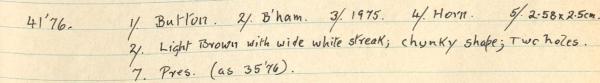 41'76. 1/ Button. 2/. B'ham. 3/ 1975. 4/ Horn. 5/ 2.58 x 2.5cm.
2/. Light Brown with wide white streak; chunky shape; Two holes.
7. Pres. (as 35'76).